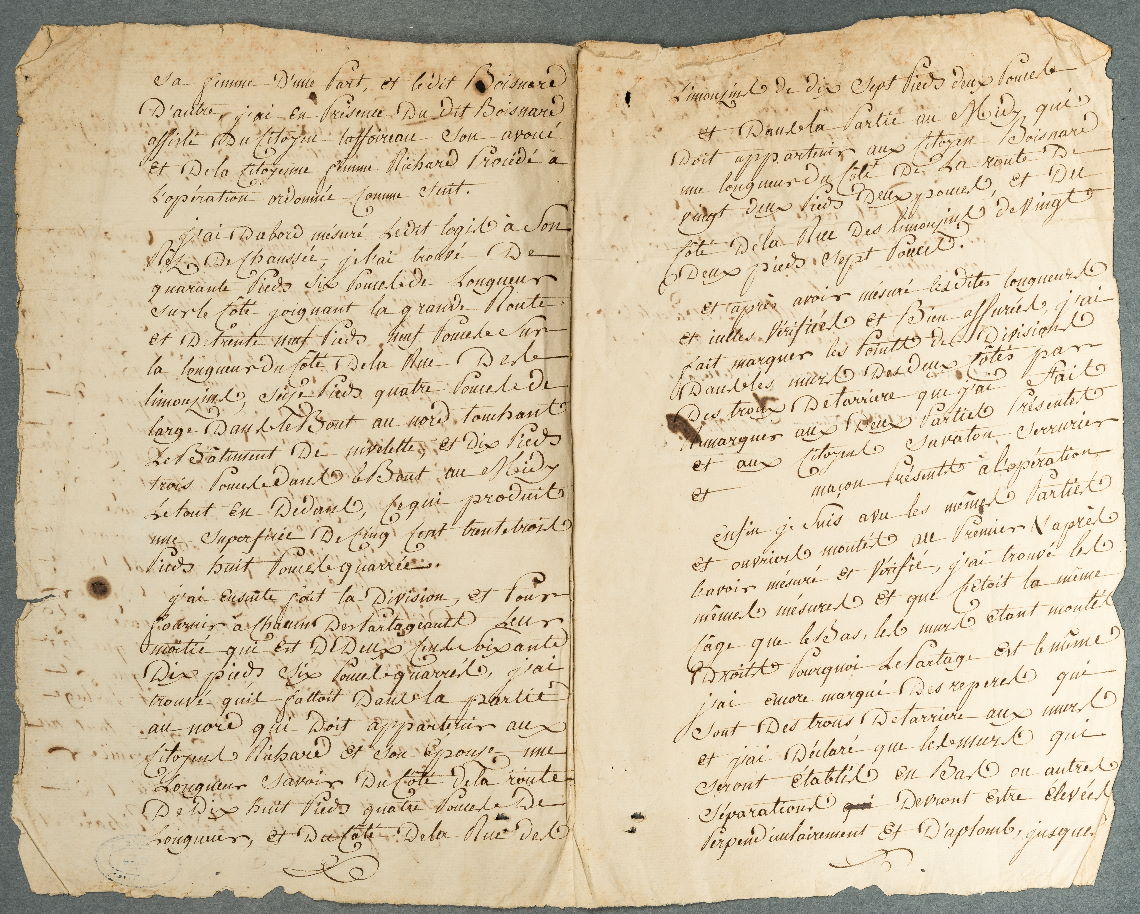 Sa femme D'une Part, et ledit Boisnard
D'autre, j'ai en Présence Du dit Boisnard
assisté Du Citoyen laffoireau Son avoué
et De la Citoyenne femme Richard Procédé à
L'opération ordonnée Comme Suit.
J'ai Dabord mesuré Ledit logis à Son
Rez De Chaussée, je l'ai trouvé De
quarante Pieds Six Pouces de Longueur
Sur le Côté joignant la grande Route
et De trente neuf Pieds, neuf Pouces Sur
la longueur du Côté De la Rue Des
limouzins, Seize Pieds quatre Pouces de
large Dans le Bout au nord touchant
Le Bâtiment De nivelette et Dix Pieds
trois Pouces dans le Bout au Midy
Le tout En Dedans, Ce qui produit
une Superficie De Cinq Cent trente trois
Pieds huit Pouces quarrée.
j'ai Ensuite fait la Division, et Pour
fournir à Chacun Des Partageants Leur
moitié qui est De Deux Cents Soixante
Dix pieds Six Pouces quarrés, j'ai
trouvé qu'il falloit Dans la partie
au nord qui Doit appartenir aux
Citoyens Richard et Son Epouse une
Longueur Savoir Du Côté De la route
De Dix huit Pieds quatre Pouces De
Longueur, et Du Côté De la Rue des
Limouzins de dix Sept Pieds deux Pouces
et Dans la Partie au Midy qui
Doit appartenir aux Citoyen Boisnard
une longueur du Côté De La route De
vingt deux Pieds Deux pouces et Du
Côté De la Rue Des limouzins de vingt
Deux pieds Sept Pouces.
et après avoir mesuré lesdites longueurs
et icelles Vérifiées et Bien assurées, j'ai
fait marquer les Points de Divisions
Dans les murs Des deux Côtés par
Des trous De tarriere que j'ai fait
Remarquer aux Deux Parties Présentes
et aux Citoyens Savaton Serrurier
et maçon Présents à l'opération
Enfin je Suis avec les mêmes Parties
et ouvriers monté au Premier & après
l'avoir mesuré et Vérifié, j'ai trouvé les
mêmes mésures et que C'étoit la même
Cage que le Bas, les murs étant montés
Droits Pourquoi Le Partage est le même
j'ai encore marqué Des reperes qui
Sont Des trous De tarriere aux murs
et j'ai Déclaré que les murs qui
Seront établis en Bas ou autres
Séparations Devront Estre élevées
Perpendiculairement et D'aplomb, jusques